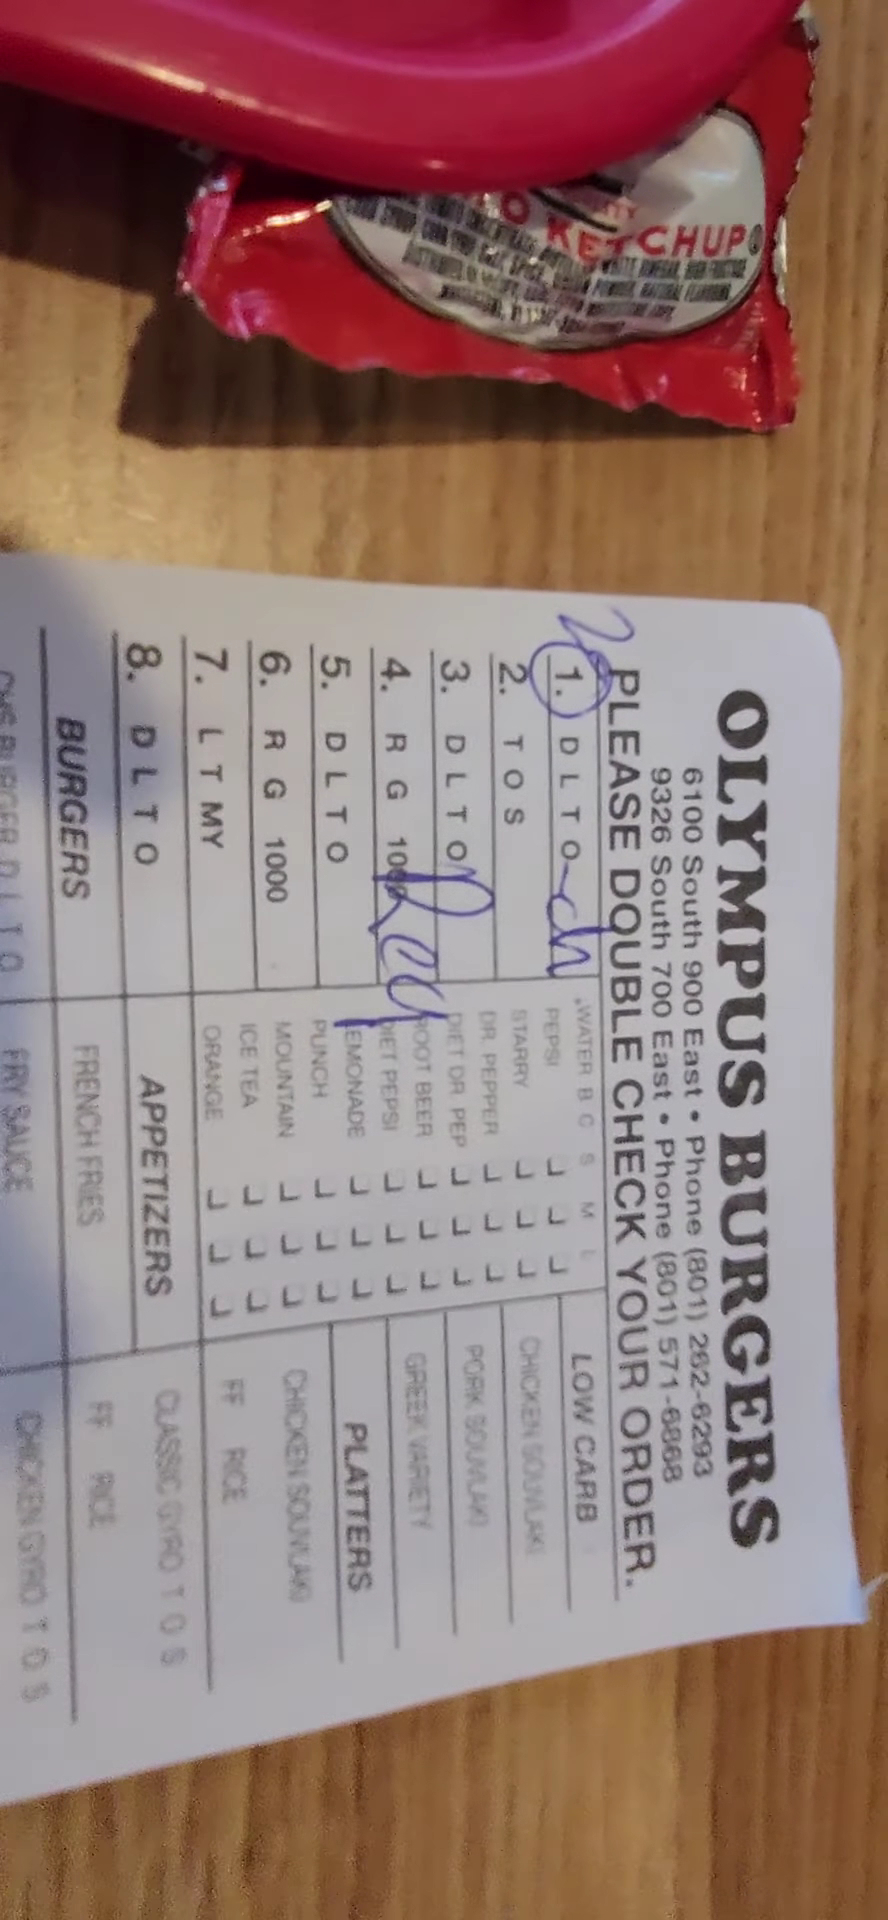 KETCHUP
OLYMPUS BURGERS
6100 South 900 East • Phone (801) 262-6293
9326 South 700 East • Phone (801) 571-6868
PLEASE DOUBLE CHECK YOUR ORDER.
1. D L T O
2. T O S
3. D L T O
4. R G 1000
5. D L T O
6. R G 1000
7. L T MY
8. D L T O
BURGERS
WATER B C S M L
PEPSI
STARRY
DR. PEPPER
DIET DR. PEP
ROOT BEER
DIET PEPSI
LEMONADE
PUNCH
MOUNTAIN
ICE TEA
ORANGE
APPETIZERS
FRENCH FRIES
FRY SAUCE
LOW CARB
CHICKEN SOUVLAKI
PORK SOUVLAKI
GREEK VARIETY
PLATTERS
CHICKEN SOUVLAKI
FF RICE
CLASSIC GYRO T O S
FF RICE
CHICKEN GYRO T O S